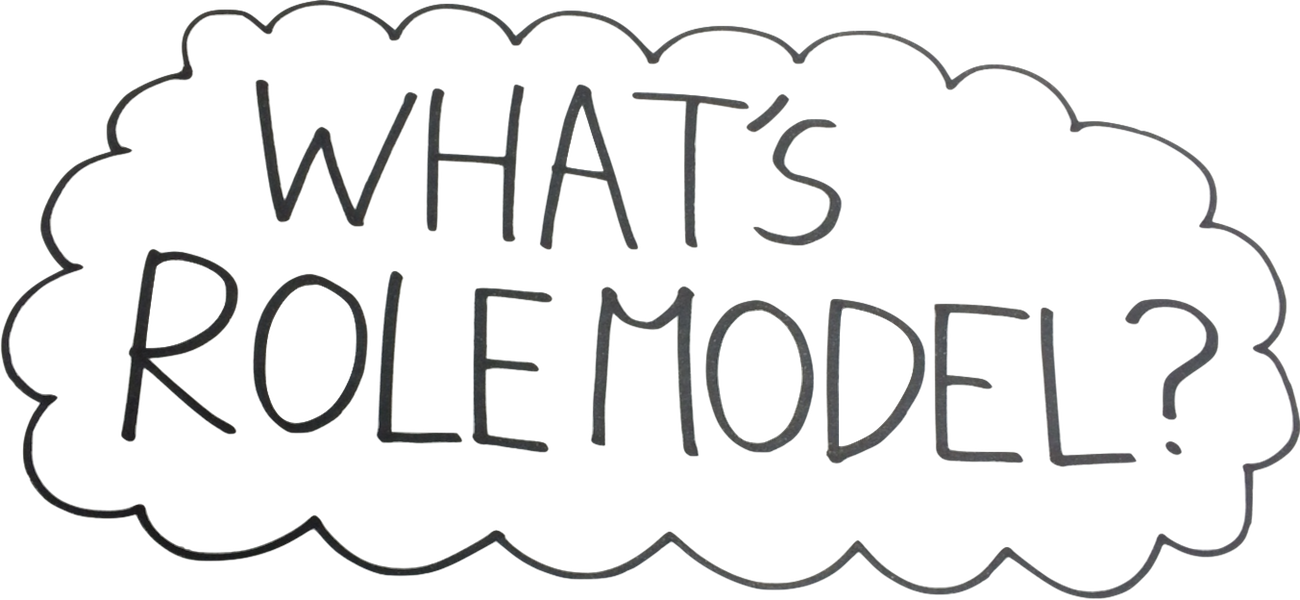 WHAT'S
ROLEMODEL?